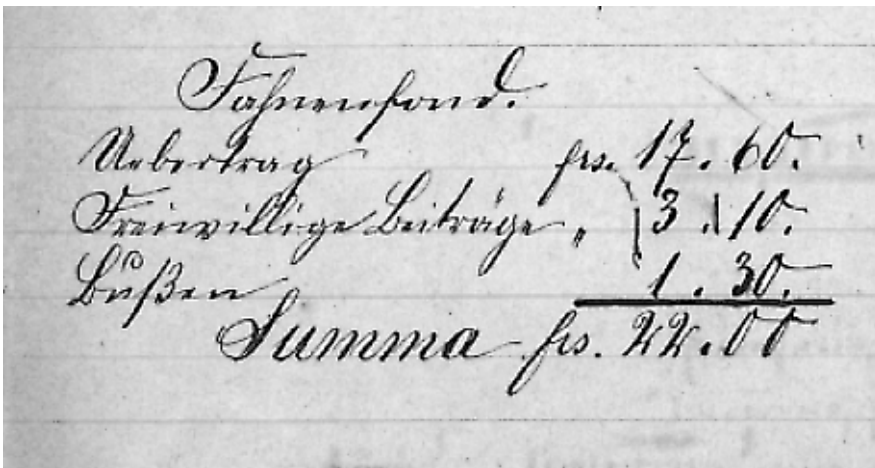 Fahnenfond.
Uebertrag frs. 17.60.
Freiwillige Beiträge „ 3.10.
Bußen 1.30.
Summa frs. 22.00